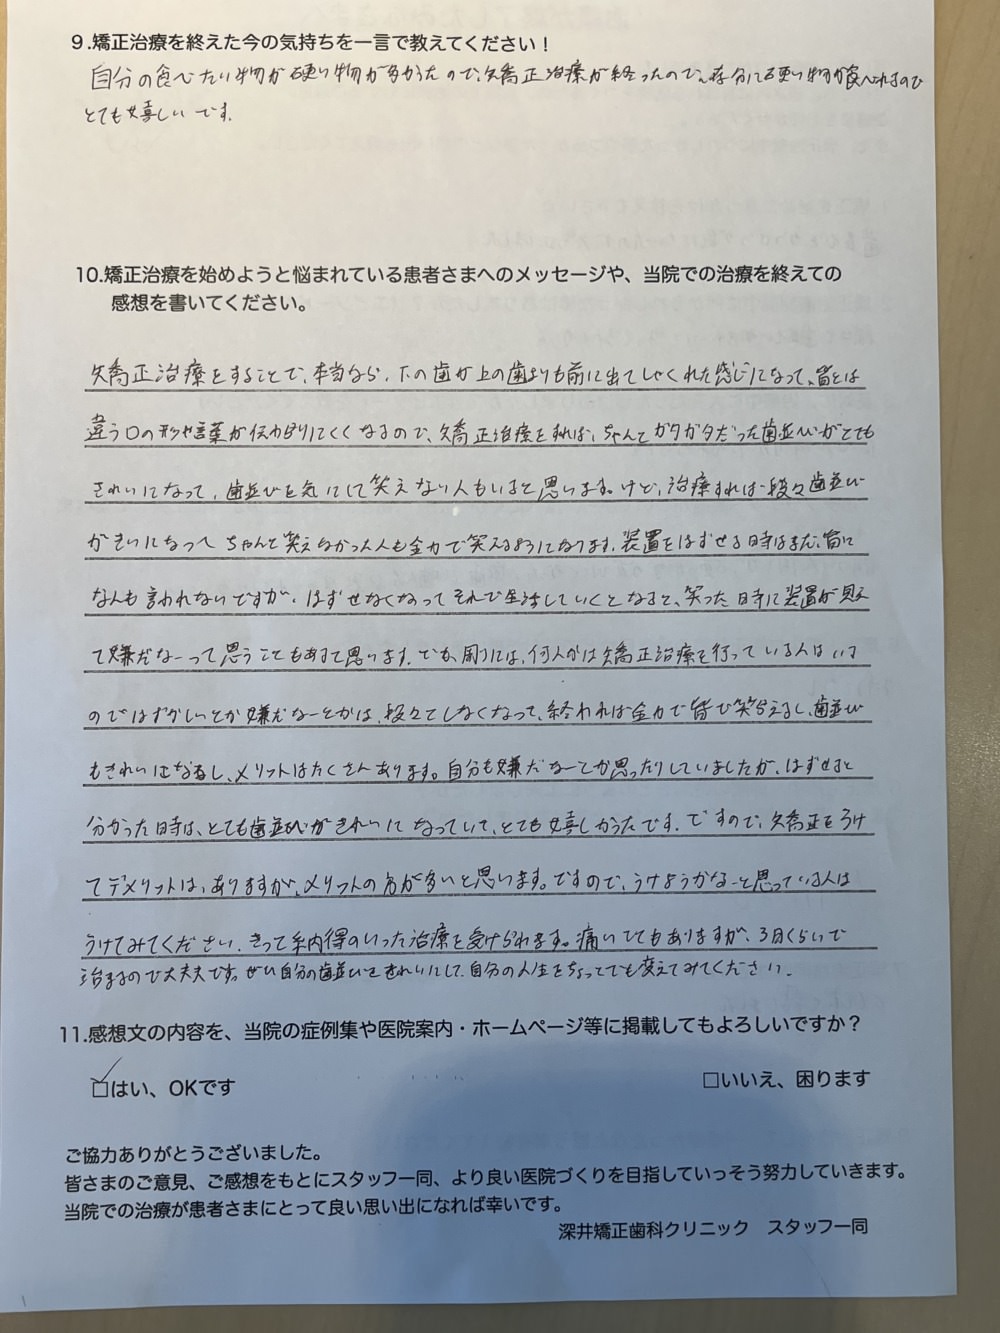 9.矯正治療を終えた今の気持ちを一言で教えてください！
自分の食べたい物が硬い物が多かったので、矯正治療が終ったので、存分に硬い物が食べれるので
とても嬉しいです。
10.矯正治療を始めようと悩まれている患者さまへのメッセージや、当院での治療を終えての
感想を書いてください。
矯正治療をすることで、本当なら、下の歯が上の歯よりも前に出てしゃくれた感じになって、皆とは
違う口の形や言葉が伝わりにくくなるので、矯正治療をすれば、ちゃんとガタガタだった歯並びがとても
きれいになって、歯並びを気にして笑えない人もいると思います。けど、治療すれば段々歯並び
がきいになって ちゃんと笑えなかった人も全力で笑えるようになります。装置をはずせる時はまだ、皆に
なんも言われないですが、はずせなくなってそれで生活していくとなると、笑った時に装置が見え
て嫌だなーって思うこともあると思います。でも、周りには、何人かは矯正治療を行っている人はいる
のではずかしいとか嫌だなーとかは、段々としなくなって、終われば全力で皆で笑い合えるし、歯並び
もきれいになるし、メリットはたくさんあります。自分も嫌だなーとか思ったりしていましたが、はずせると
分かった時は、とても歯並びがきれいになっていて、とても嬉しかったです。ですので、矯正をうけ
てデメリットは、ありますが、メリットの方が多いと思います。ですので、うけようかなーと思っている人は
うけてみてください。きって納得のいった治療を受けられます。痛いでもありますが、3日くらいで
治まるので大夫夫です。ぜひ自分の歯並びをきれいにして、自分の人生をちょっとでも変えてみてください。
11.感想文の内容を、当院の症例集や医院案内・ホームページ等に掲載してもよろしいですか？
☑はい、OKです
□いいえ、困ります
ご協力ありがとうございました。
皆さまのご意見、ご感想をもとにスタッフ一同、より良い医院づくりを目指していっそう努力していきます。
当院での治療が患者さまにとって良い思い出になれば幸いです。
深井矯正歯科クリニック　スタッフ一同